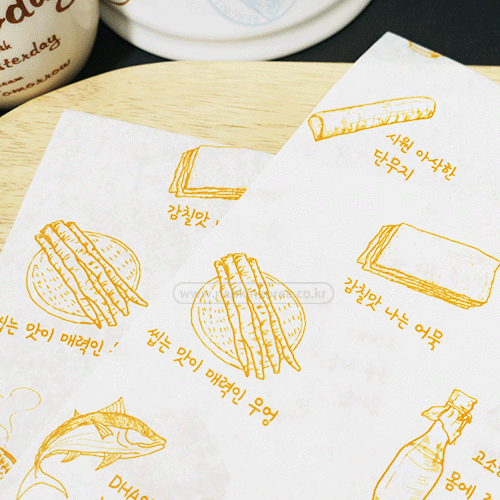 sterday
Tomorrow
시원 아삭한
단무지
감칠맛
감칠맛 나는 어묵
씹는 맛이 매력인
씹는 맛이 매력인 우엉
고소
몸에
DHA